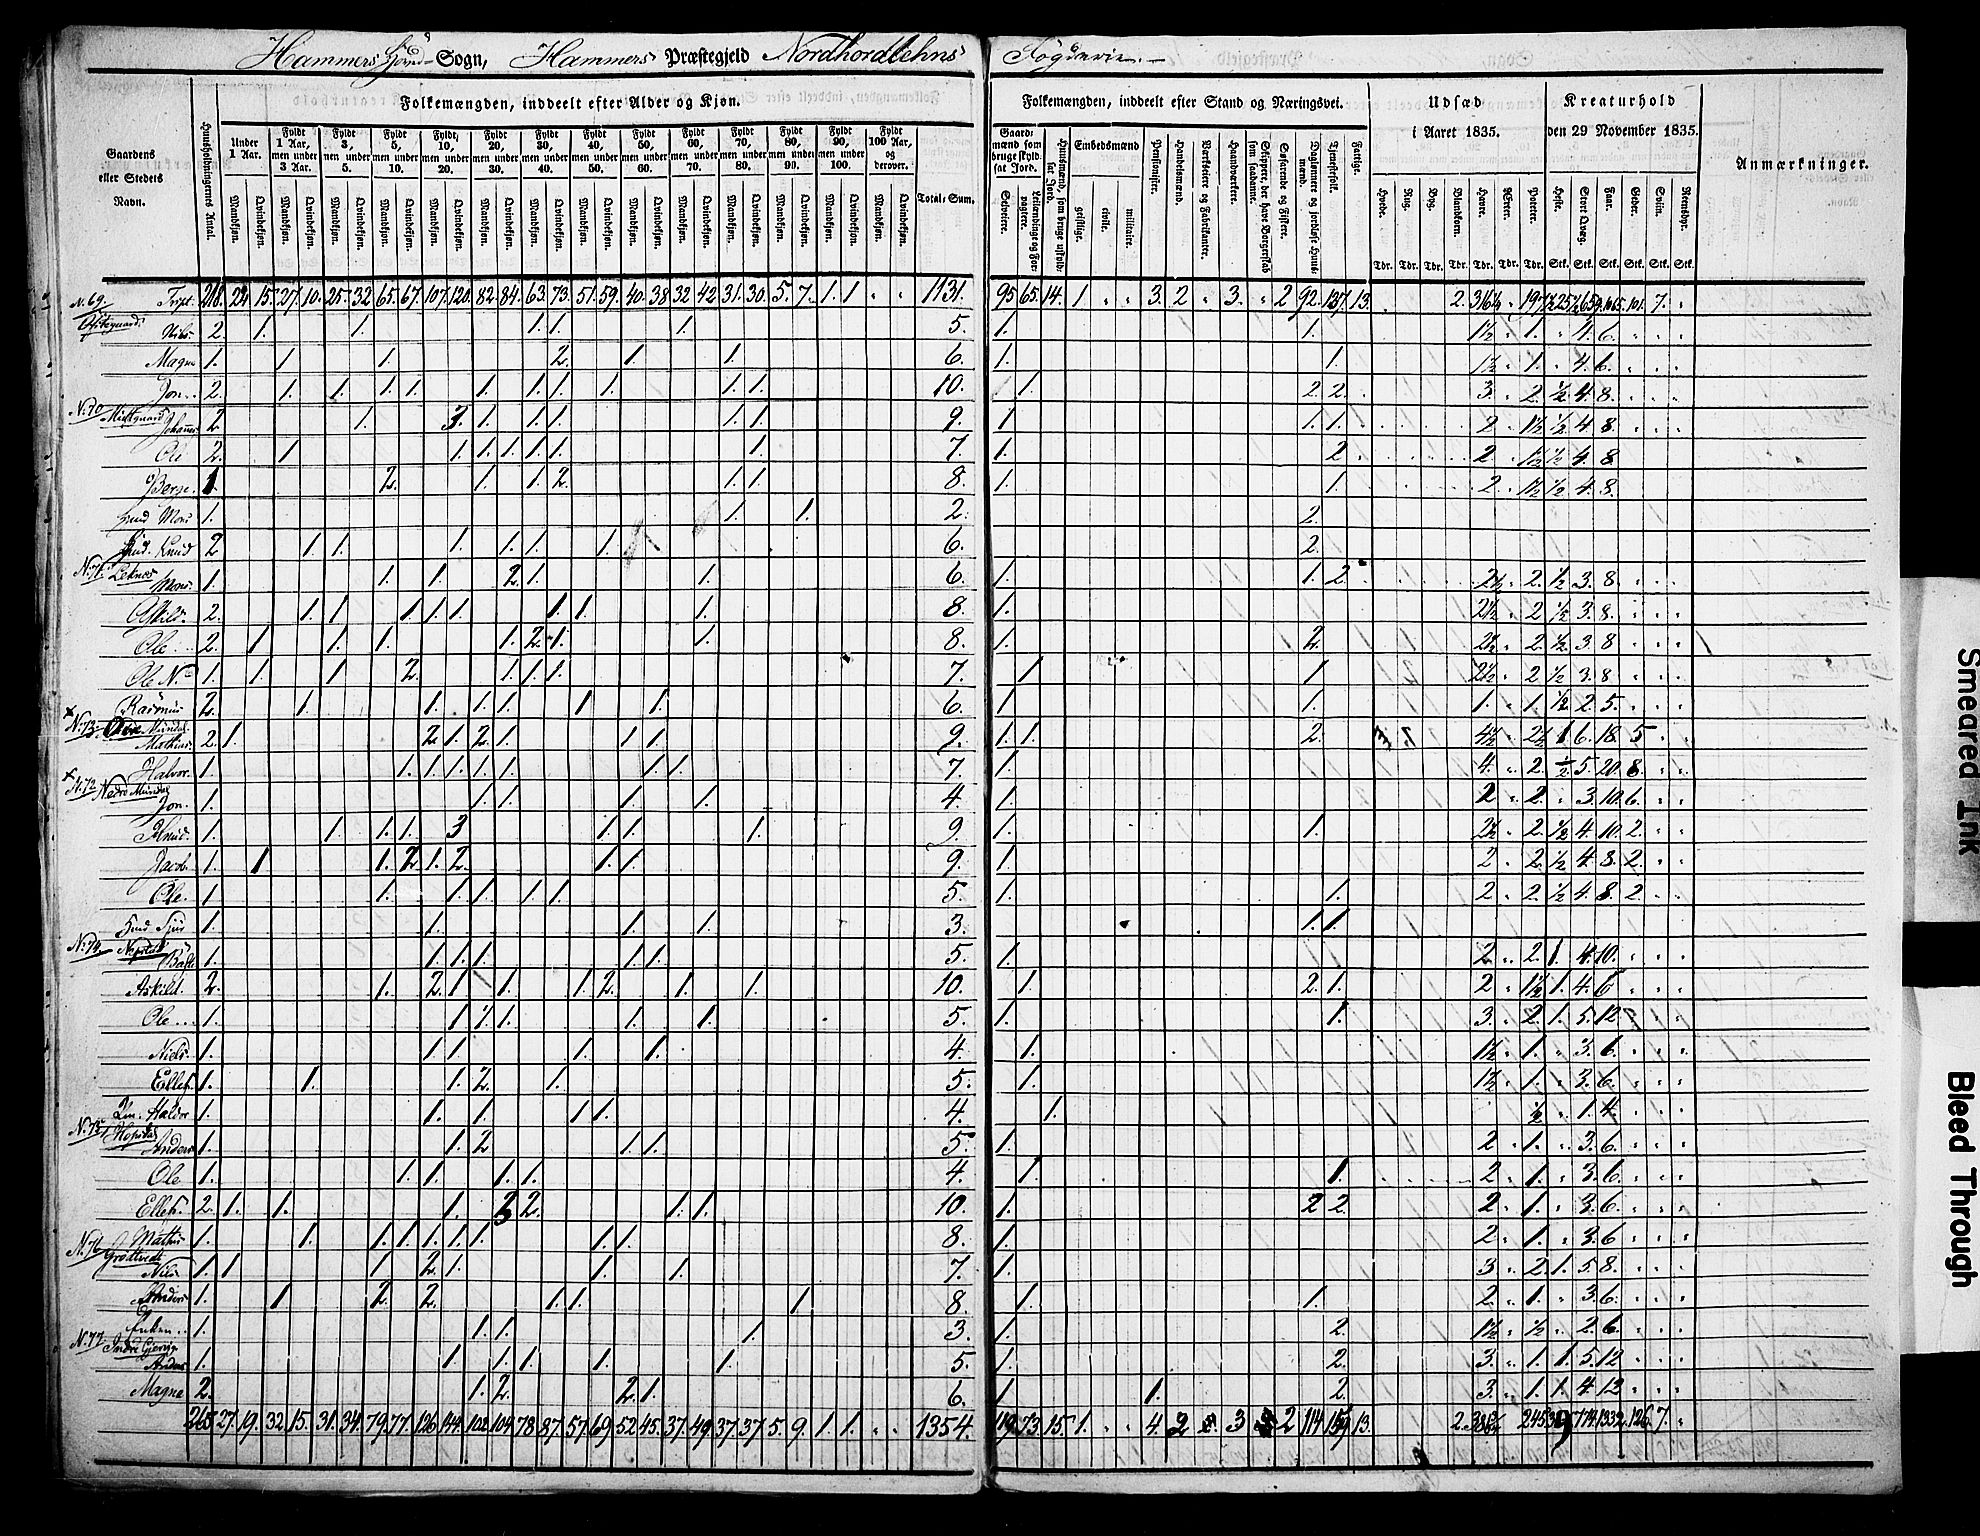 Hammers Hoved-Sogn, Hammers Præstegjeld Nordhordlehns Fogderie.
Folkemængden, inddeelt efter Alder og Kjøn. Folkemængden, inddeelt efter Stand og Næringsvei. Udsæd i Aaret 1835. Kreaturhold den 29 November 1835. Anmærkninger.
Gaardens eller Stedets Navn. Huusholdningernes Antal. Under 1 Aar. Fyldt 1 Aar, men under 3 Aar. Fyldt 3, men under 5. Fyldt 5, men under 10. Fyldt 10, men under 20. Fyldt 20, men under 30. Fyldt 30, men under 40. Fyldt 40, men under 50. Fyldt 50, men under 60. Fyldt 60, men under 70. Fyldt 70, men under 80. Fyldt 80, men under 90. Fyldt 90, men under 100. Fyldt 100 Aar, og derover. Total-Sum.
Mandkjøn. Qvindekjøn.
Gaardmænd som bruge skyldsat Jord. Selveiere. Leilændinge og Forpagtere. Huusmænd, som bruge uskyldsat Jord. Embedsmænd geistlige. civile. militaire. Pensionister. Handelsmænd. Værkseiere og Fabrikanter. Haandværkere. Skippere, der have Borgerskab som saadanne. Søfarende og Fiskere. Daglønnere og jordløse Huusmænd. Tjenestefolk. Fattige.
Hvede. Rug. Byg. Blandkorn. Havre. Erter. Poteter. Heste. Stort Qvæg. Faar. Geder. Sviin. Rensdyr.
Tdr. Tdr. Tdr. Tdr. Tdr. Tdr. Tdr. Stk. Stk. Stk. Stk. Stk. Stk.
N. 69. 15. 27. 10. 25. 32 65. 67. 107. 120. 82. 84. 63. 73. 51. 59. 40. 38 32. 42. 31. 30. 5. 7. 1. 1 1131. 95 65. 14. 1 3. 2 3. 2 92. 137. 13. 2. 101. 7.
Nils. 2. 1. 1. 1. 1. 1. 5. 1. 1. 1½ 1. 4. 6.
Magne 1. 1. 1. 2. 1. 1. 6. 1. 1. 1½ 1. 4. 6.
Jon. 2. 1. 1. 1. 1. 1. 1. 1. 1. 1. 1. 10. 1. 2 2. 3. 2. ½ 4. 8.
N. 70 Midtgaard Johannes 2 1. 3. 1. 1. 1. 1. 1. 9. 1 1. 1. 2 1½ ½ 4. 8.
Ole 2. 1 1. 1. 1. 1. 1. 1. 7. 1. 2 2. 1½ ½ 4. 8
Berge. 1. 2. 1. 1. 2. 1. 1. 8. 1. 1. 2. 1½ ½ 4. 8.
Huud Mons 1. 1. 1. 2. 2.
Huud. Knud 2 1. 1. 1. 1. 1. 1. 6. 2.
N. 71. Leknes Mons. 1. 1. 1. 2 1. 1. 6. 1. 1. 2. 2½ 2. ½ 3. 8.
2. 1. 1 1. 1. 1. 1. 1. 1. 8. 1. 2½ 2 ½ 3. 8.
Ole 2. 1 1. 1. 1. 2. 1. 1. 8. 1. 2. 2½ 2. ½ 3. 8
Ole N. 1. 1. 1. 2. 1. 1. 1. 7. 1 1 2½ 2 ½ 3. 8
Rasmus 2. 1. 1. 1. 1. 1 1. 6. 1. 1. 1. 1. ½ 2. 5.
N. 73. Mundal Mathias 2. 1. 2. 1. 2. 1. 1. 1. 9. 1. 1. 2. 4½ 1 6. 18. 5
Halvor. 1. 1. 1. 1. 1. 1. 1. 1. 7. 1. 4. 2. ½ 5. 20. 8.
N. 72 Nedre Mundal Jon. 1. 1. 1. 1. 1. 4. 1. 2 2. 3. 10. 6.
Knud. 1. 1. 1. 1. 3 1. 1. 1. 9. 1. 1. 2½ 2. ½ 4. 10. 2.
Jacob. 1. 1 1. 2. 1. 2. 1. 1. 9. 1. 2 2. ½ 4. 8. 2.
Ole. 1. 1. 1. 1. 1. 1. 5. 1. 1. 2 2. ½ 4. 8. 2.
1. 1. 1. 1. 3. 1. 1.
N. 74. 1. 1. 1. 1. 1. 1. 5. 1. 2. 2. 1. 4. 10.
Askild. 2. 1. 2. 1 1. 1. 2. 1. 1. 10. 1. 2. 1. 2 1½ 1. 4. 6
Ole 1. 1. 2. 1. 1. 1. 5. 1. 1. 3. 2 1. 5. 12.
Niels 1. 1. 1. 1. 1. 4. 1. 1½ 1. 3. 6.
Ellef. 1. 1. 1. 2. 1. 5. 1. 1½ 1. 3. 6.
Haldor 1. 1. 1. 1. 1. 4. 1. ½ 1. 4.
N. 75 Hopsdal Anders 1. 1. 2 1. 1. 5. 1. 2 1. 3. 6.
Ole 1. 1. 1. 1. 1. 4. 1. 1. 2 1. 3. 6.
Ellef. 2. 1. 1. 1. 3 2. 1. 1. 10. 1. 2 2. 2. 1. 3. 6.
Mathis 1. 1. 1. 1. 1. 1. 1. 1. 1. 8. 1. 2. 1. 3. 6
N. 76 Nils 1. 1 1. 2. 1. 1. 1. 7. 1. 3 2. 1. 5. 8.
Anders 1. 1 2. 2. 1. 1. 1. 8. 1. 1. 2. 1. 3. 6.
Enken 1. 1. 1. 1. 3. 1. 2. 1½ ½ 2. 6.
N. 77. Indre Anders 1. 1. 1. 1. 1. 1. 5. 1. 2. 3. 1. 1. 5. 12
Magne 2. 1. 2. 2. 1. 6. 1 1. 2. 3. 1. 1. 4. 12
265. 27. 19. 32. 15. 31. 34. 79. 77. 126. 149. 102. 104. 78. 87. 57. 69. 52. 45. 37. 49. 37. 37. 5. 9. 1 1. 1354. 119. 73. 15. 1. 4. 2 3 2 114 13. 2. 126. 7.
Smeared Ink
Bleed Through